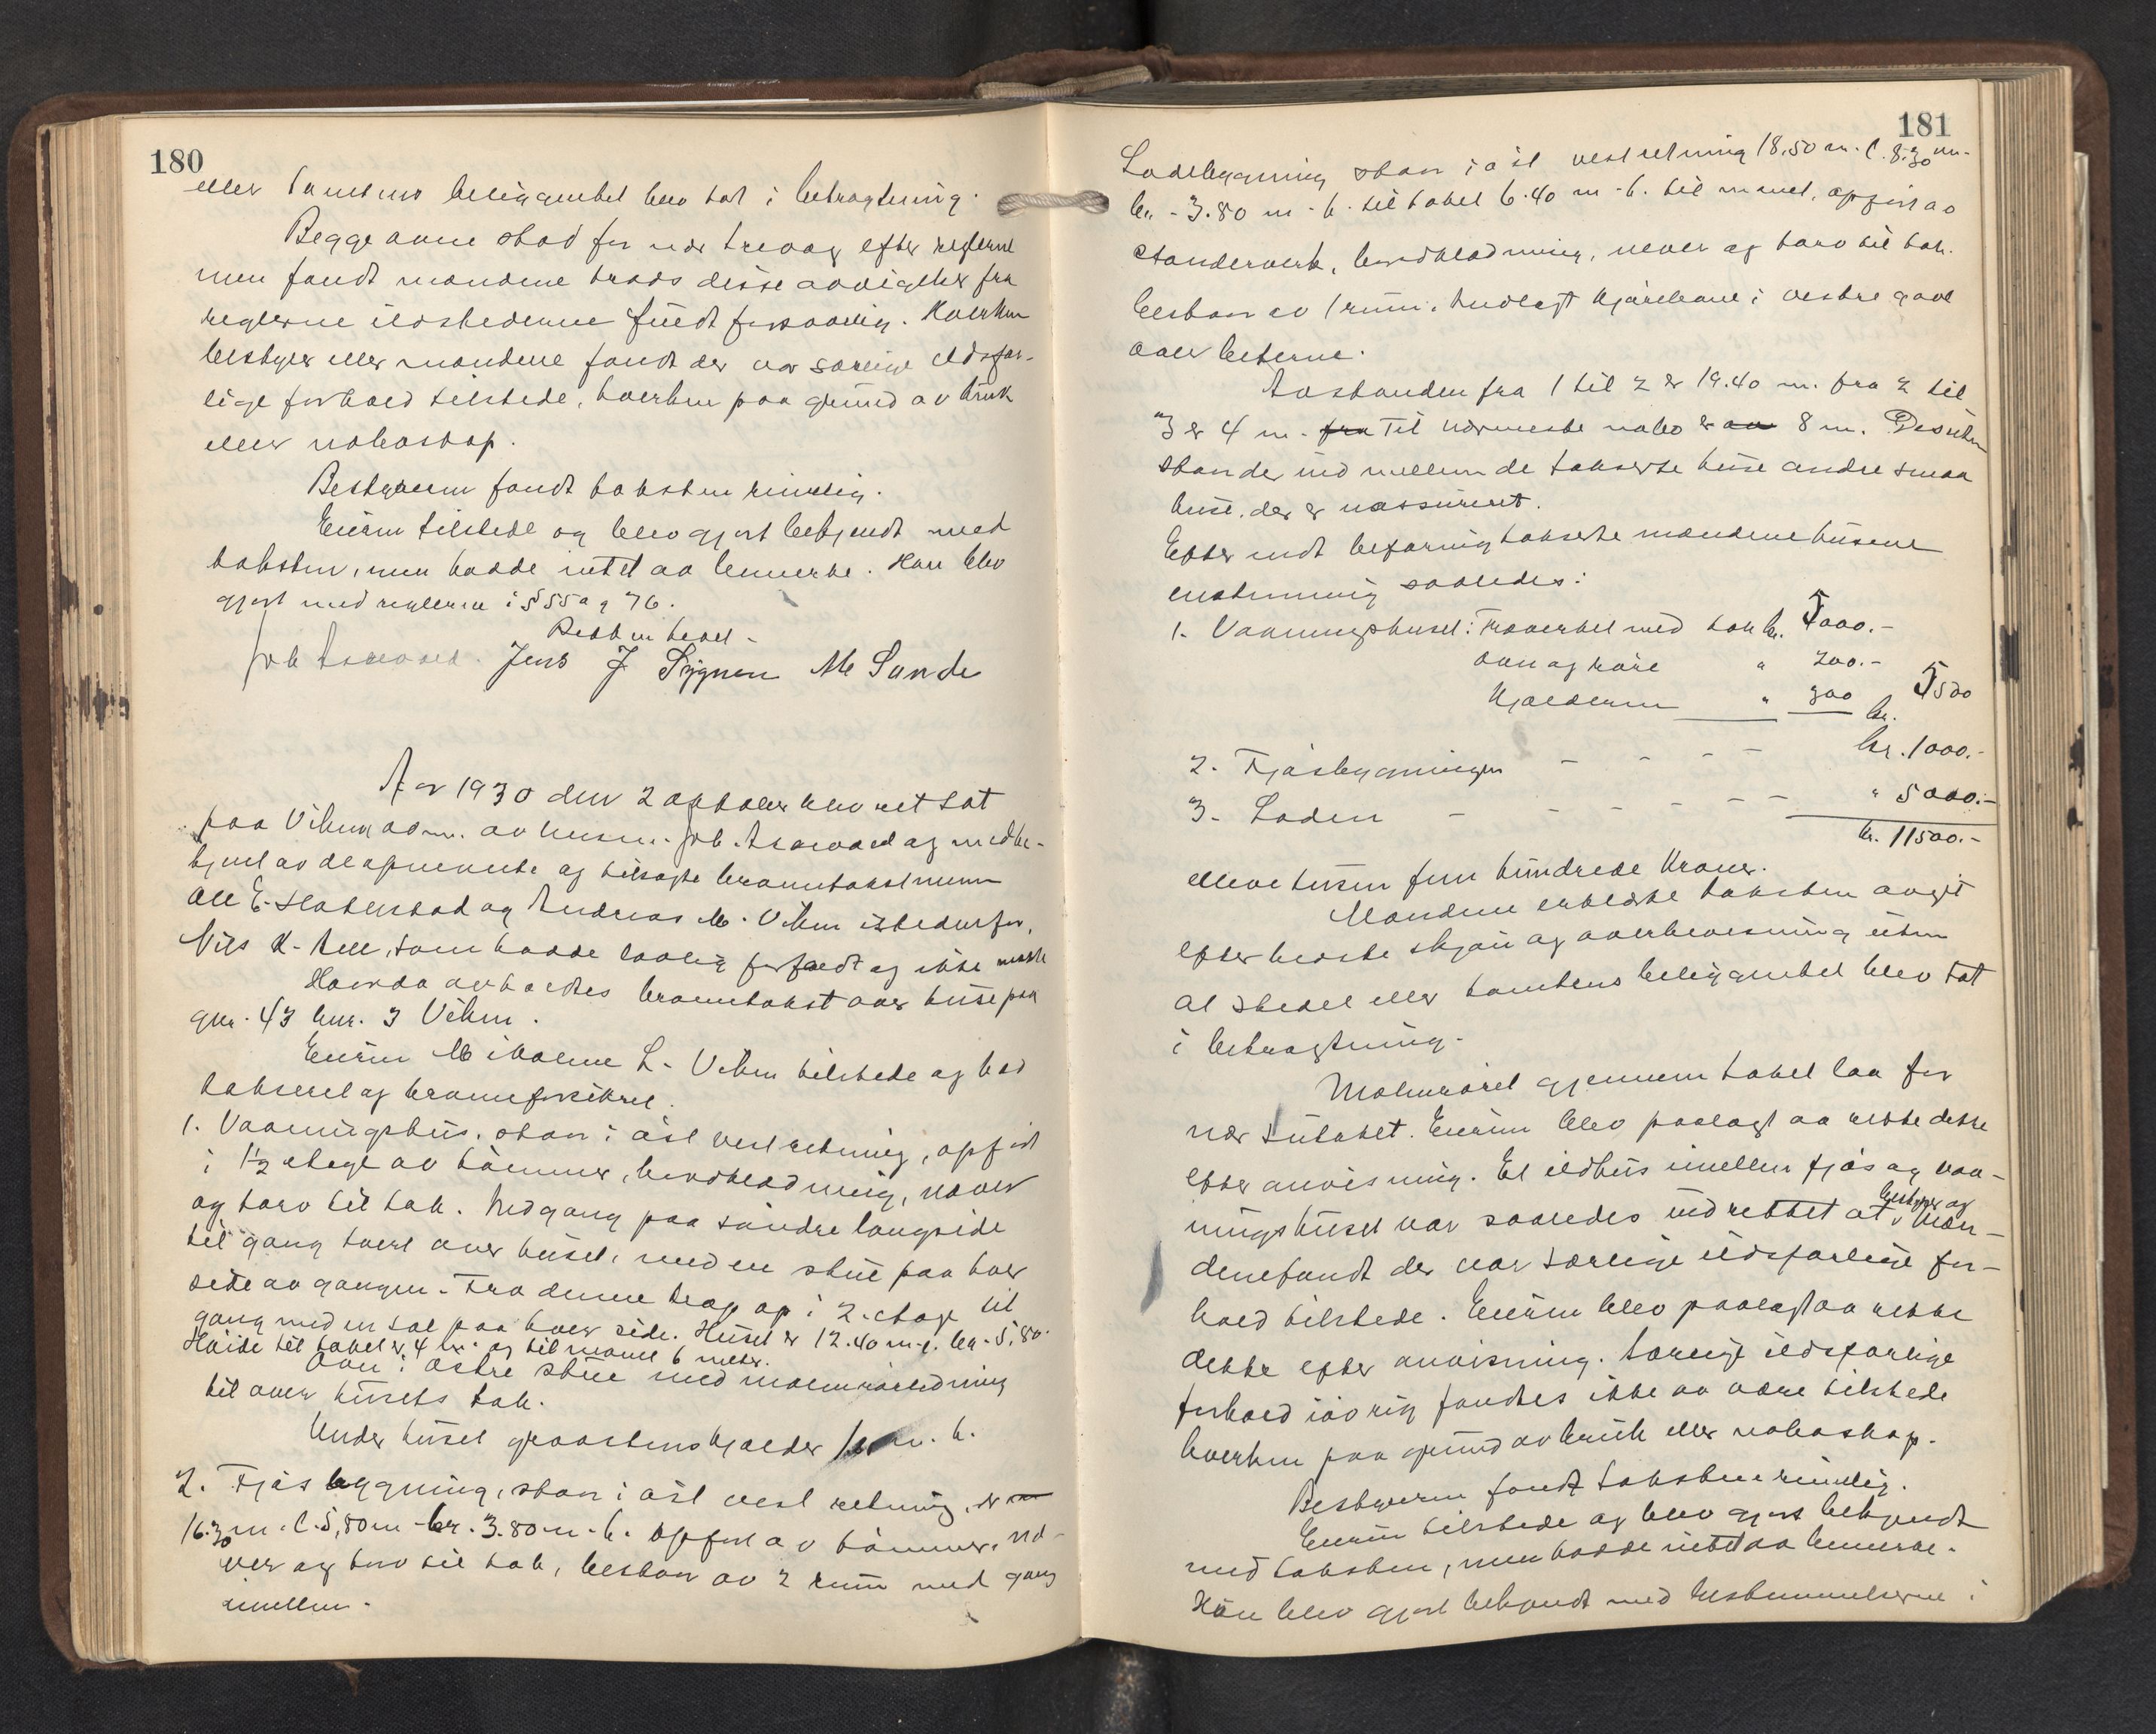 180
eller tomtens beliggenhet blev tat i betragtning.
Begge ovne stod for nær trevæg efter reglerne
men fandt mændene trods disse avvigelser fra
reglerne ildstederne fuldt forsvarlig. Hverken
bestyrer eller mændene fandt der var særlige ildsfar-
lige forhold tilstede, hverken paa grund av bruk
eller naboskap.
Bestyreren fandt taksten rimelig.
Eieren tilstede og blev gjort bekjendt med
taksten, men hadde intet aa bemerke. Han blev
gjort med reglerne i § 55 og 76.
Retten hevet -
Joh Aarevoid. Jens J Sygnen M Sunde
Aar 1930 den 2 oktober blev ret sat
paa Viken av av lensm. Joh. og medbe-
tjent av de opnevnte og tilsagte branntakstmenn
Ole E. og Andreas M. Viken istedenfor
Nils K. som hadde lovlig forfald og ikke møtte
Hvorda avholdtes branntakst over huse paa
gnr. 43 bnr. 3 Viken.
Eieren Mikal L. Viken tilstede og bad
taksert og brannforsikret.
1. Vaaningshus, staar i øst vest retning, opført
i 1½ etage av tømmer, bordklædning, næver
og torv til tak. Nedgang paa søndre langside
til gang tvert over huset, med en stue paa hver
side av gangen. Fra denne trap op i 2. etage til
gang med en sal paa hver side. Huset er 12.40 m. l. br. 5,80.
Høide til takel er 4 m. og til møne 6 meter.
Ovn i østre stue med malmrørledning
til over husets tak.
Under huset graastenskjelder m. h.
2. Fjøsbygning, staar i øst vest retning, er
16.30 m. l. 5,80 m - br. 3.80 m. h. Opført av tømmer, næ-
ver og torv til tak, bestaar av 2 rum med gang
imellem.
181
Ladebygning staar i øst vest retning 18.50 m. l. 8.30 m.
br. - 3.80 m - h. til takel 6.40 m - h. til mønet, opført av
standerverk, bordklædning, never og torv til tak.
bestaar av 1 rum, indlagt kjørebane i vestre gavl
over beterne.
Avstanden fra 1 til 2 er 19.40 m. fra 2 til
3 er 4 m. fra Til nærmeste nabo er aa 8 m. Desuten
staar der ind mellem de takserte huse andre smaa
huse, der er uassurert.
Efter endt befaring takserte mændene husene
enstemmig saaledes:
1. Vaaningshuset: Træverket med tak kr. 5000.-
Ovn og røre " 200.-
Kjælderen " 300 kr. 5500
2. Fjøsbygningen - - - - kr. 1000.-
3. Laden - - - - - - " 5000.-
kr. 11500.-
elleve tusen fem hundrede Kroner.
Mændene erklærte taksten avgit
efter bedste skjøn og overbevisning uten
at stedet eller tomtens beliggenhet blev tat
i betragtning.
Malmrøret gjennem taket laa for
nær sutaket. Eieren blev paalagt aa rette dette
efter anvisning. Et ildhus imellem fjøs og vaa-
ningshuset var saaledes indrettet at bestyrer og mæn-
dene fandt der var særlige ildsfarlige for-
hold tilstede. Eieren blev paalagt aa rette
dette efter anvisning. Særlige ildsfarlige
forhold iøvrig fandtes ikke aa være tilstede
hverken paa grund av bruk eller naboskap.
Bestyreren fandt taksten rimelig.
Eieren tilstede og blev gjort bekjendt
med taksten, men hadde intet aa bemerke.
Han blev gjort bekjendt med bestemmelserne i